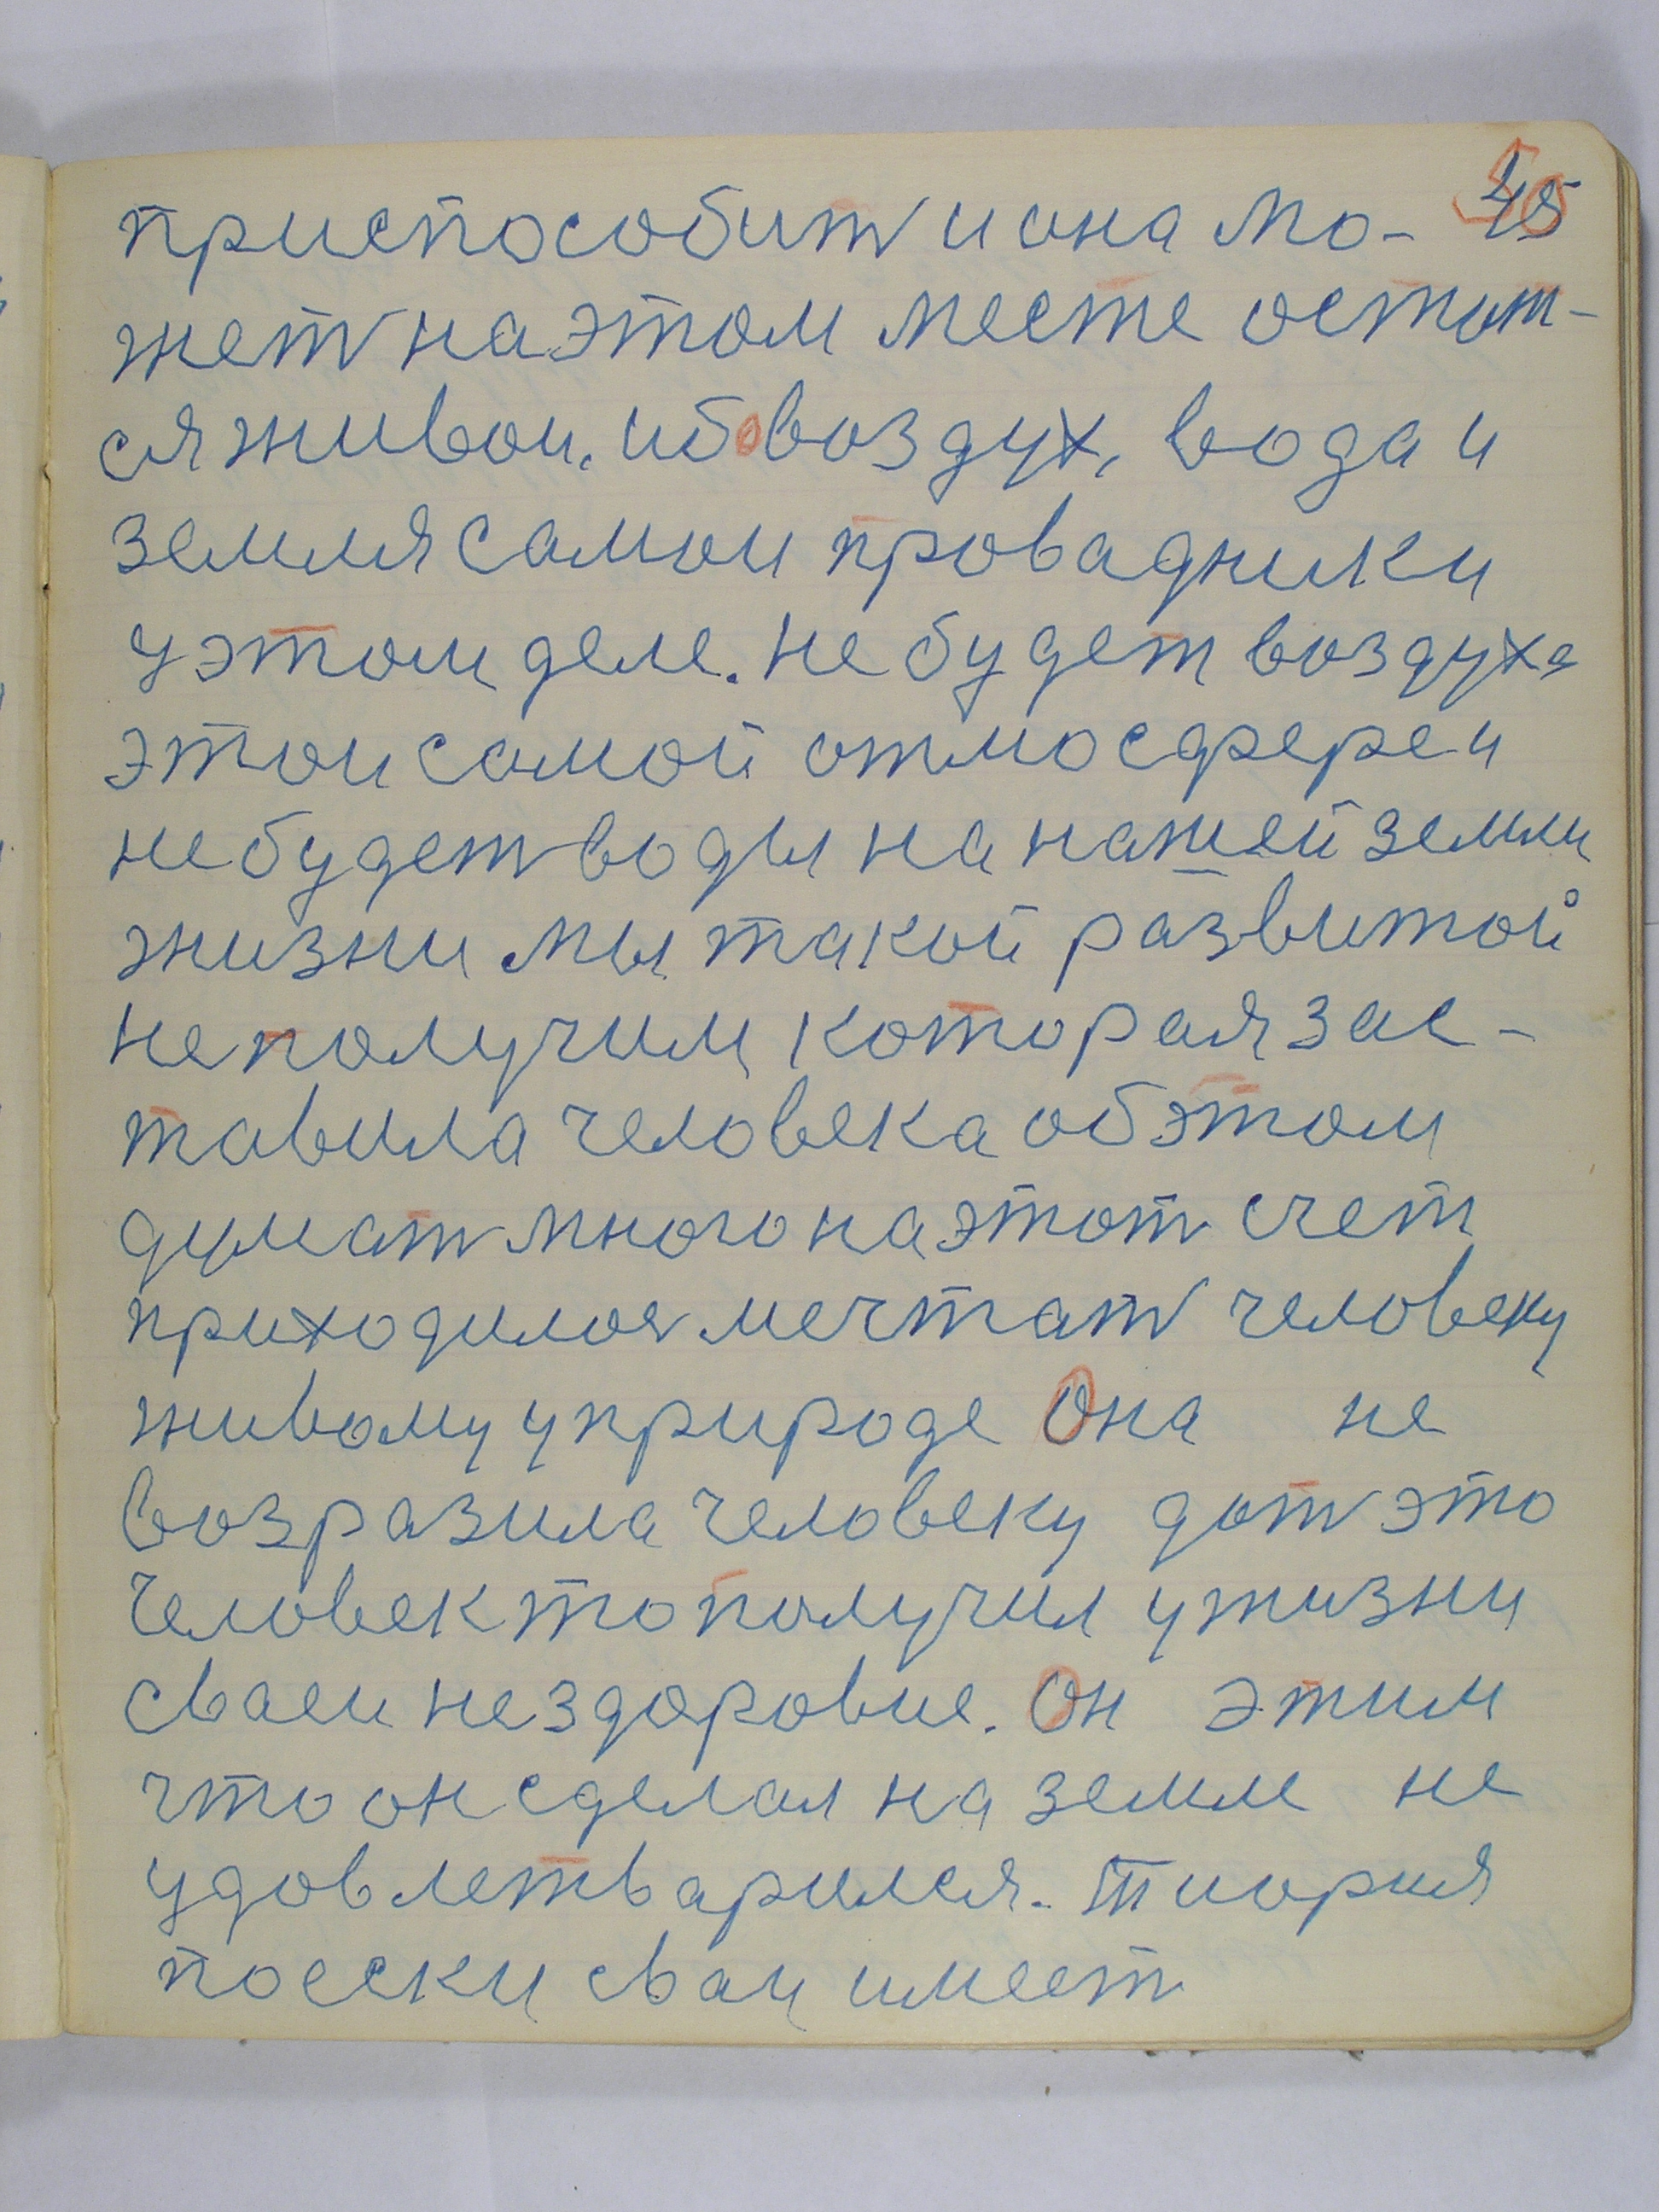 45
приспособит и она мо-
жет на этом месте остат-
ся живои. ибо воздух, вода и
земля самои провадники
у этом деле. не будет воздуха
этои самой отмосфере и
не будет воды на нашей земли
жизни мы такой развитой
не получим которая зас-
тавила человека об этом
думат много на этот счет
приходилос мечтат человеку
живому у природе Она не
возразила человеку дат это
человек то получил у жизни
сваеи не здоровие. Он этим
что он сделал на земле не
удовлетварился. тиория
поески сваи имеет